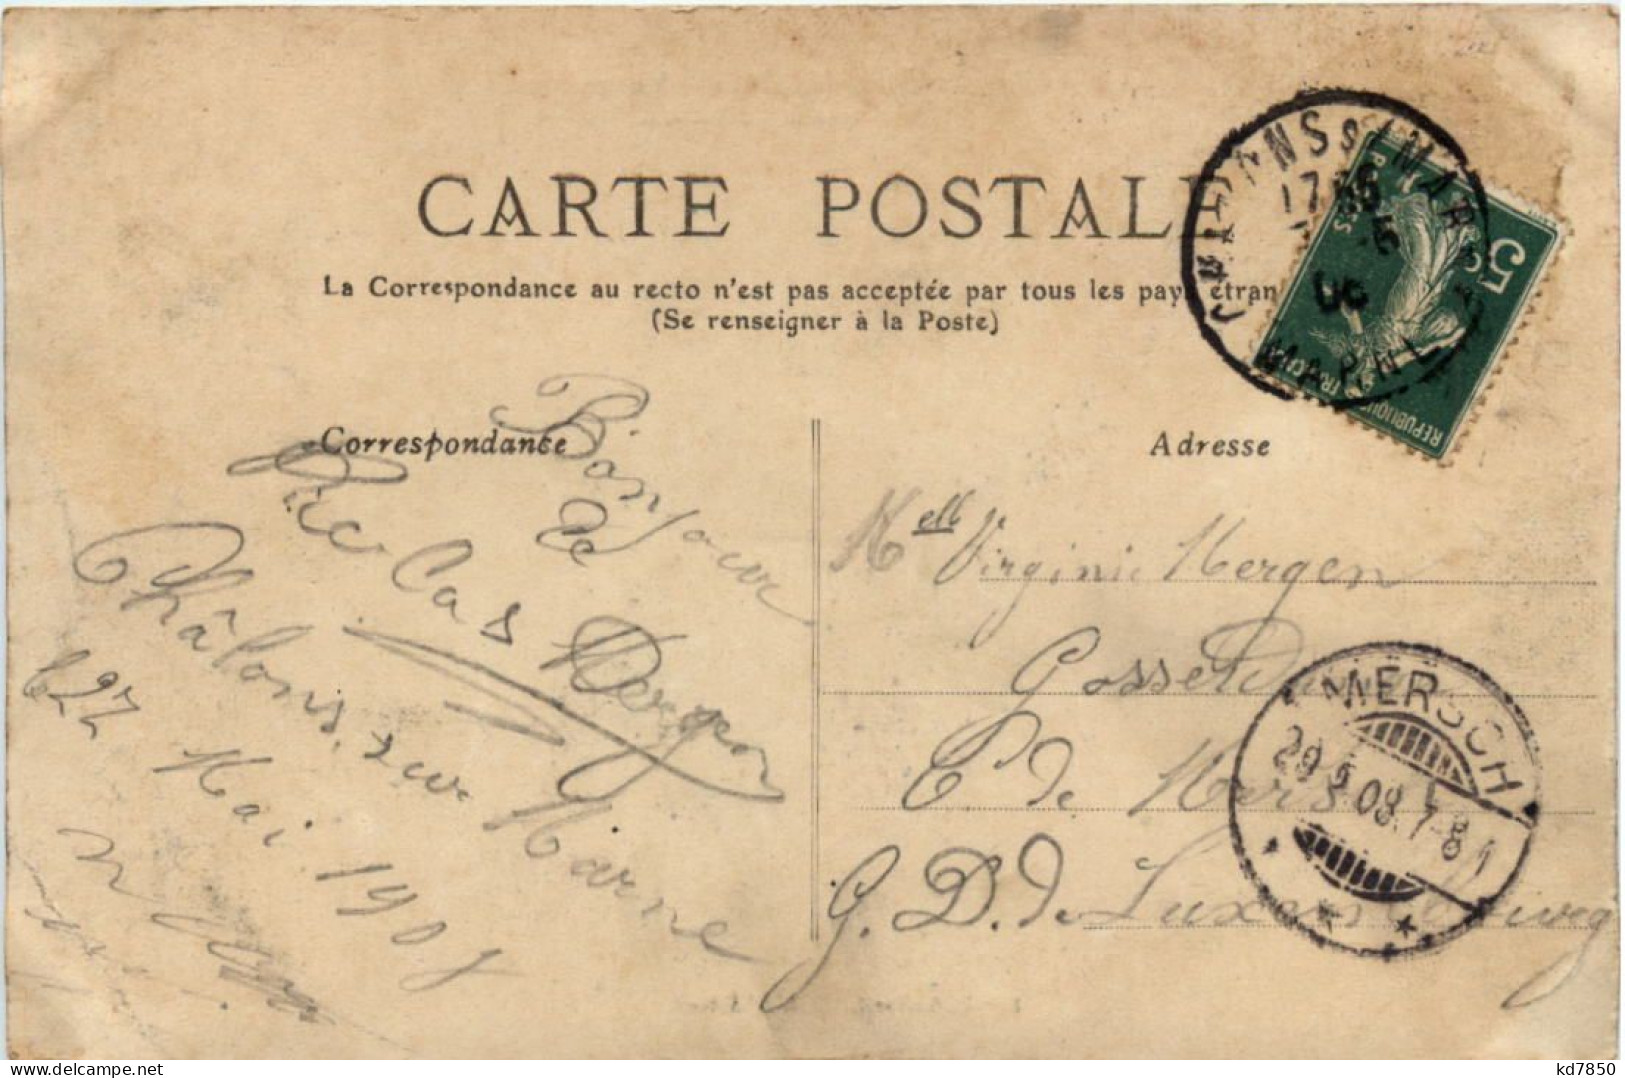 CARTE POSTALE
La Correspondance au recto n'est pas acceptée par tous les pays étran
(Se renseigner à la Poste)
Correspondance
Bonjour
de
Nicolas Mergen
Châlons sur Marne
le 27 Mai 1908
Adresse
Melle Virginie Mergen
Gosseldange
C. de Mersch
G. D. de Luxembourg
CHALONS s/ MARNE
17 35
5
08
MARNE
5c
POSTES
REPUBLIQUE FRANCAISE
MERSCH
29 5 08. 7-8
delcampe.net
kd7850